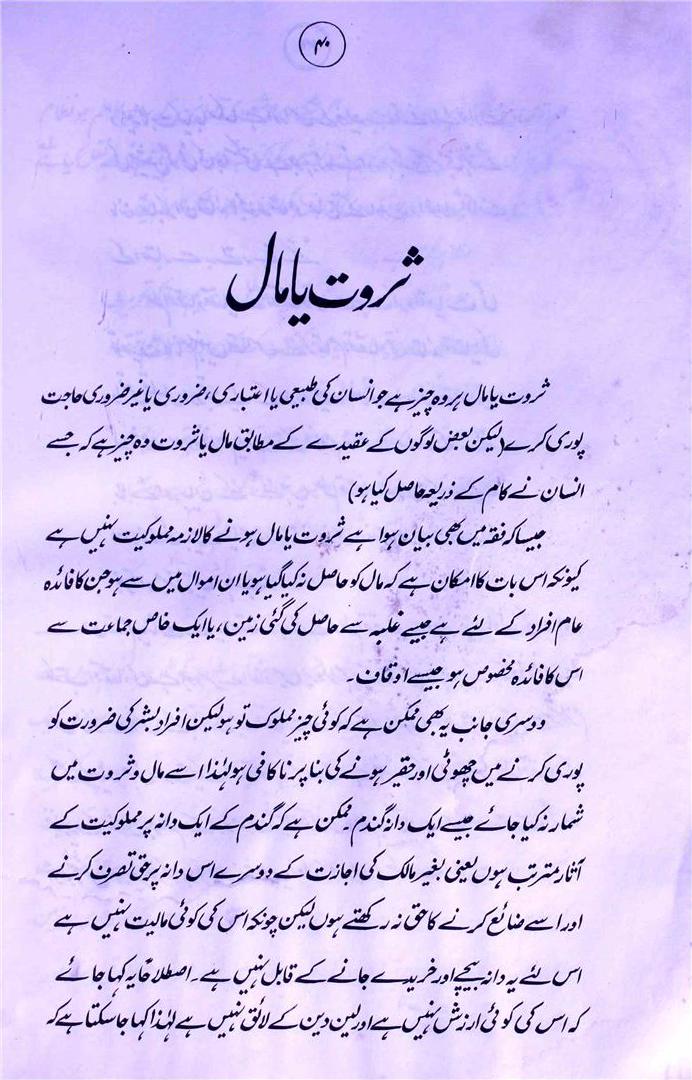 ۴۰
ثروت یا مال
ثروت یا مال ہر وہ چیز ہے جو انسان کی طبیعی یا اعتباری، ضروری یا غیر ضروری حاجت
پوری کرے (لیکن بعض لوگوں کے عقیدے کے مطابق مال یا ثروت وہ چیز ہے کہ جسے
انسان نے کام کے ذریعہ حاصل کیا ہو)
جیسا کہ فقہ میں بھی بیان ہوا ہے ثروت یا مال ہونے کا لازمہ مملوکیت نہیں ہے
کیونکہ اس بات کا امکان ہے کہ مال کو حاصل نہ کیا گیا ہو یا ان اموال میں سے ہو جن کا فائدہ
عام افراد کے لئے ہے جیسے غلبہ سے حاصل کی گئی زمین، یا ایک خاص جماعت سے
اس کا فائدہ مخصوص ہو جیسے اوقاف۔
دوسری جانب یہ بھی ممکن ہے کہ کوئی چیز مملوک تو ہو لیکن افراد بشر کی ضرورت کو
پوری کرنے میں چھوٹی اور حقیر ہونے کی بنا پر ناکافی ہو لہٰذا اسے مال و ثروت میں
شمار نہ کیا جائے جیسے ایک دانہ گندم۔ ممکن ہے کہ گندم کے ایک دانہ پر مملوکیت کے
آثار مترتب ہوں یعنی بغیر مالک کی اجازت کے دوسرے اس دانہ پر حق تصرف کرنے
اور اسے ضائع کرنے کا حق نہ رکھتے ہوں لیکن چونکہ اس کی کوئی مالیت نہیں ہے
اس لئے یہ دانہ بیچے اور خریدے جانے کے قابل نہیں ہے۔ اصطلاحاً یہ کہا جائے
کہ اس کی کوئی ارزش نہیں ہے اور لین دین کے لائق نہیں ہے لہٰذا کہا جا سکتا ہے کہ